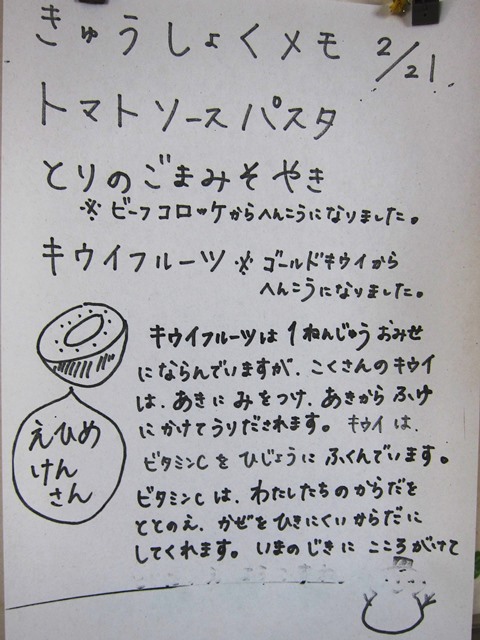 きゅうしょくメモ 2/21
トマトソースパスタ
とりのごまみそやき
※ ビーフコロッケからへんこうになりました。
キウイフルーツ ※ ゴールドキウイから
へんこうになりました。
キウイフルーツは 1ねんじゅう おみせ
にならんでいますが、こくさんのキウイ
は、あきに みをつけ、あきから ふゆ
にかけてうりだされます。 キウイ は、
ビタミンC を ひじょうに ふくんでいます。
ビタミンC は、わたしたちのからだを
ととのえ、かぜをひきにくいからだに
してくれます。いまのじきに こころがけて
えひめ
けん
さん